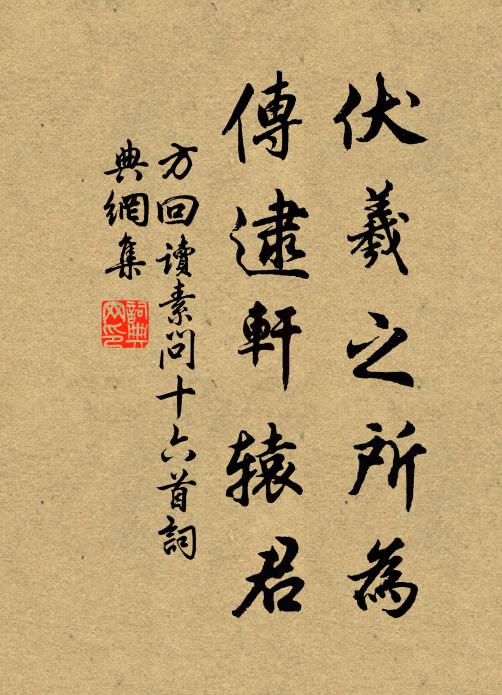 伏羲之所為
傳逮軒辕君
方回讀素問十六首詞
典網集
詞典
网印